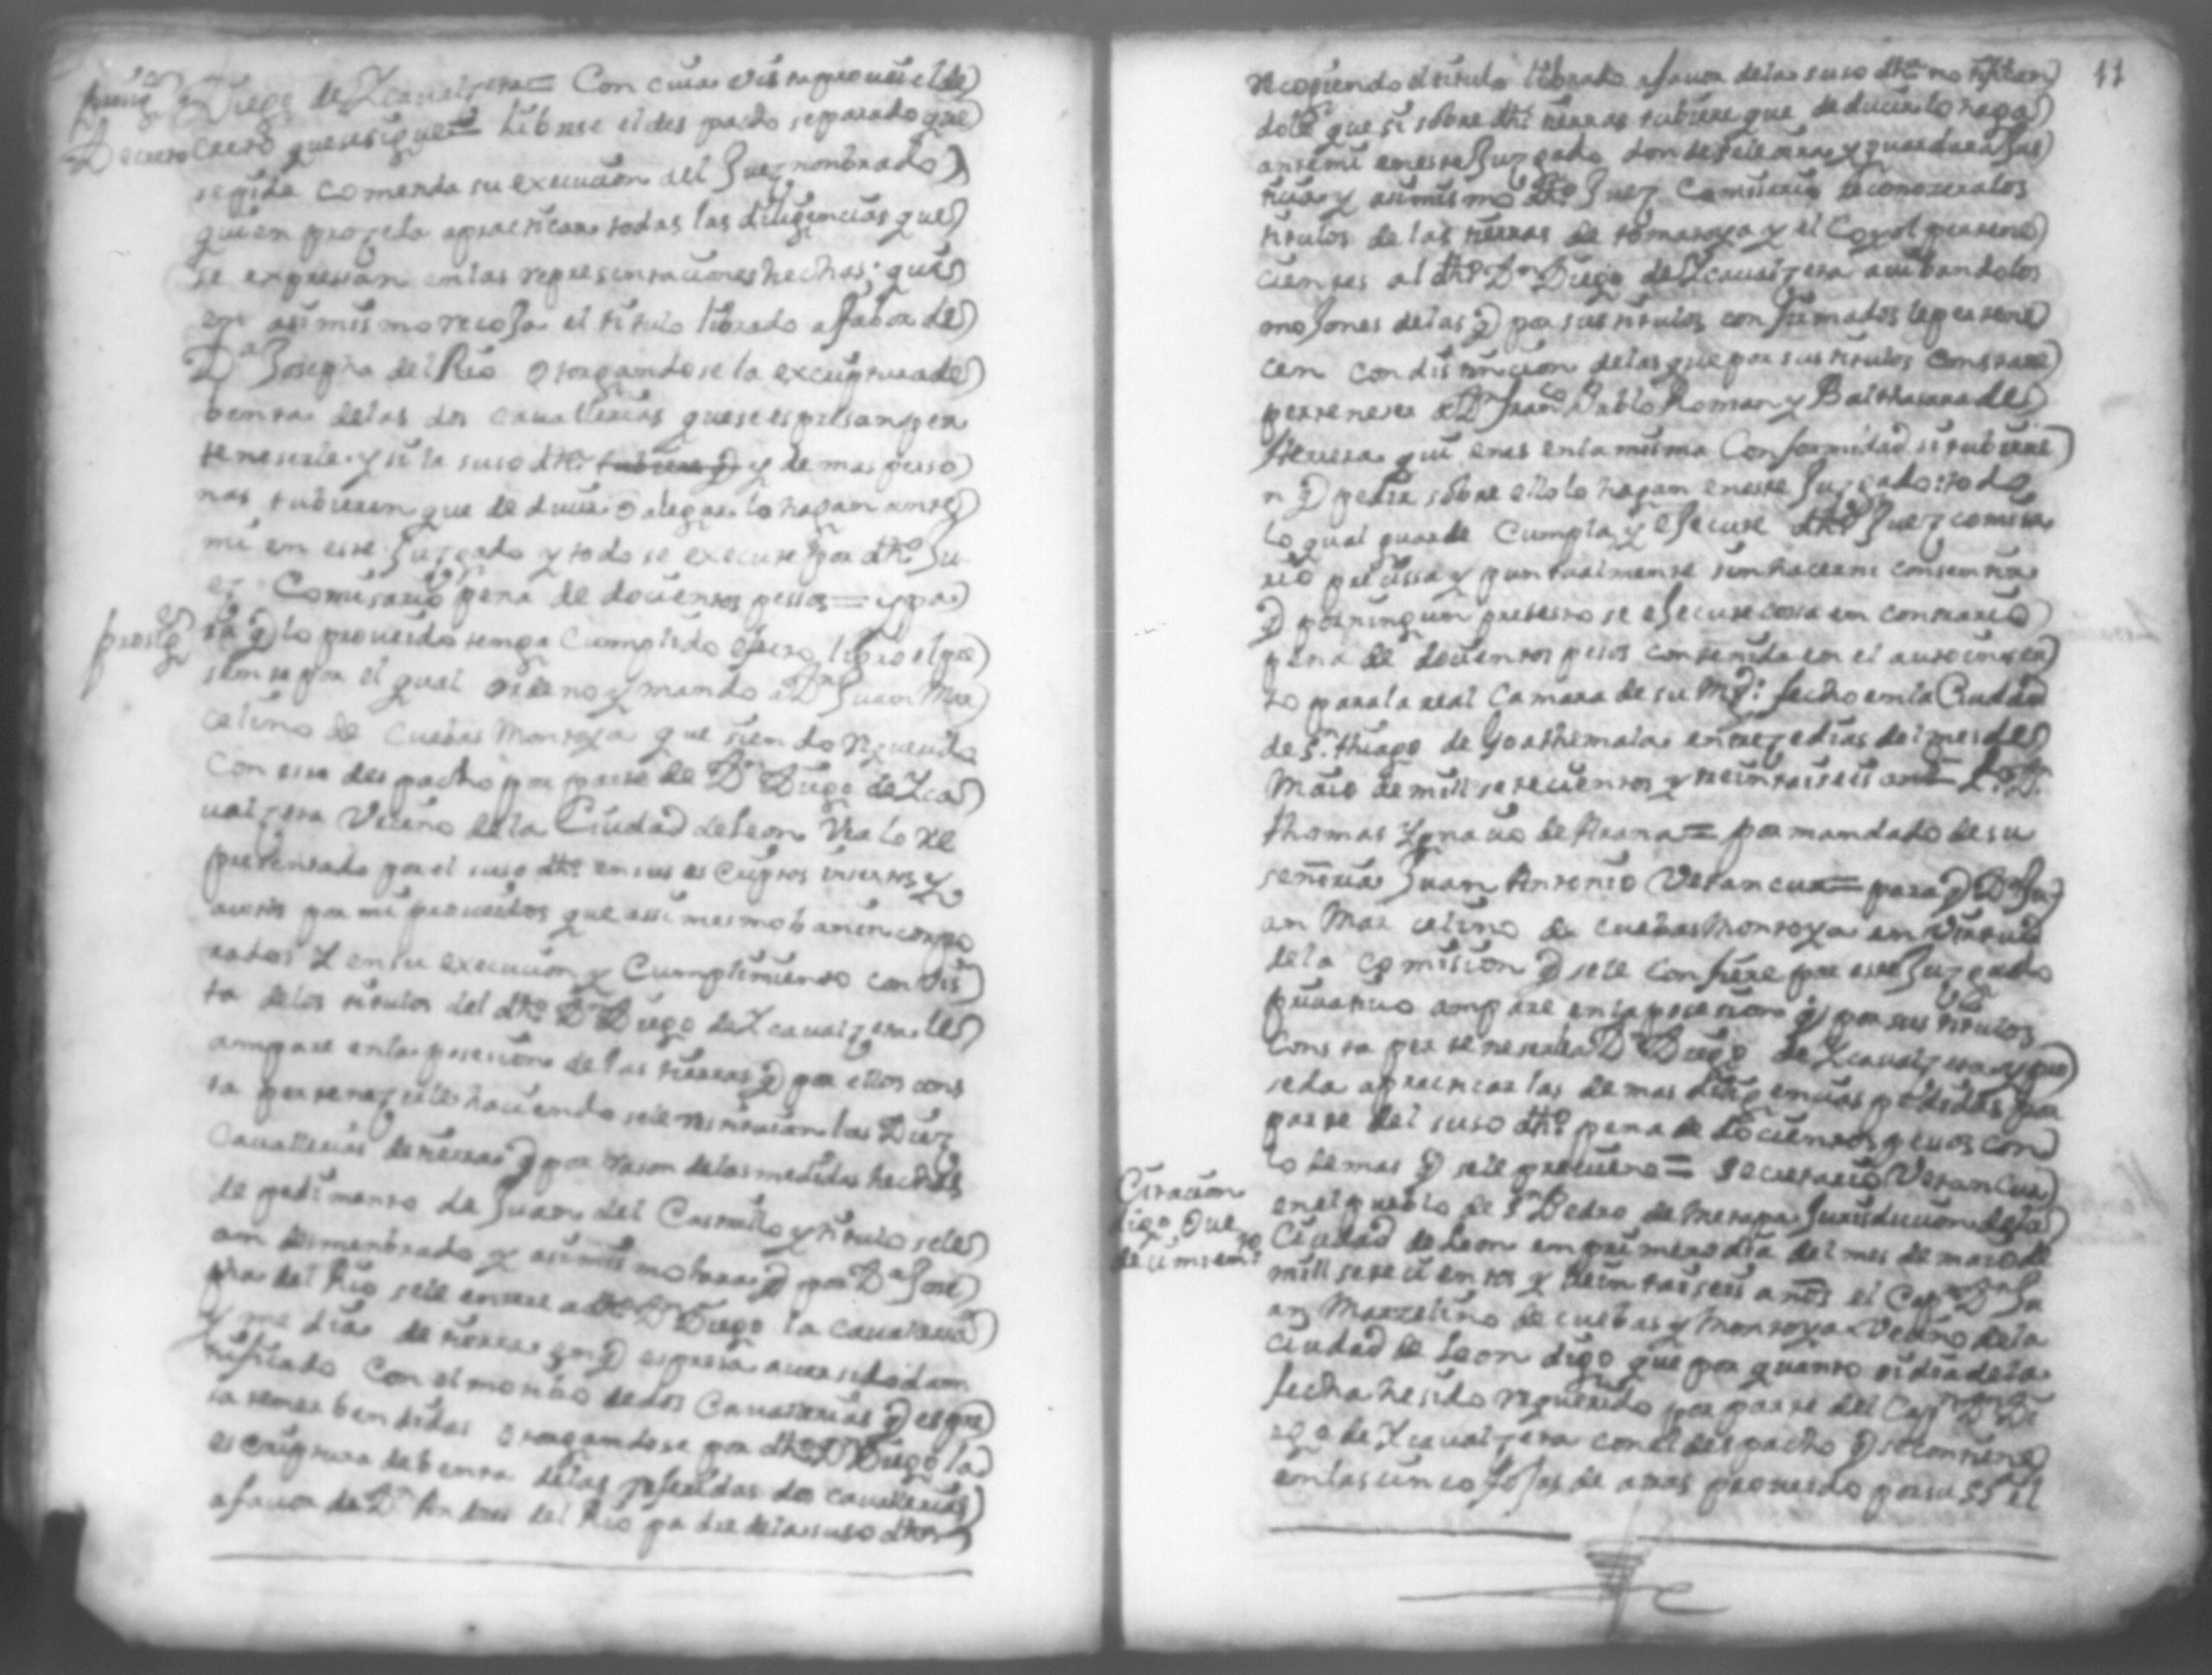 Diego de Ycaualzeta = Con cuia vista proueí el de
Decreto creto que se sigue = Librese el des pacho separado que
se pide cometida su execucion al Juez nombrado
quien prozeda apracticar todas las diligencias que
se expresan en las representaciones hechas; qui
en asimismo recoJa el titulo librado afabor de
Da Josepha del Rio otorgandosele la escriptura de
benta delas dos cauallerias que se espresan per
tenecerle y si la suso dha tubiere q y demas perso
nas tubieren que de ducir o alegar lo hagan ante
mi en este Juzgado y todo se execute por dho Ju
ez Comisario pena de docientos pessos = y pa
prosig ra q lo proueido tenga cumplido efecto libro el pre
sente por el qual ordeno y mando a Dn Juan Mar
celino de Cuebas Montoya que siendo requerido
Con este des pacho por parte de Dn Diego de Yca
ualzeta Vecino dela Ciudad de Leon Vea lo re
presentado por el suso dho en sus es criptos insertos y
autos por mi proueidos que assi mesmo ban incorpo
rados Y en su execucion y Cumplimiento con vis
ta delos titulos del dho Dn Diego de Ycaualzeta le
ampare enla posesion de las tierras q por ellos cons
ta pertenezerle haciendosele restituian las Diez
Cauallerias de tierras q por rason delas medidas hechas
de pedimento de Juan del Castillo y titulo sele
an desmenbrado y asimismo hara q por Da Jose
pha del Rio sele entere a dho Dn Diego la caualleria
y me dia de tierra en q espresa auersido dam
nificado Con el motibo dedos Cauallerias q espre
sa tener bendidas otorgandose por dho Dn Diego la
es criptura debenta delas referidas dos cauallerias
afauor de Dn Andres del Rio pa dre dela suso dha
11
recogiendo el titulo librado afauor dela suso dha notifican
dole que si sobre dhas tierras tubiere que deducir lo haga
antemi eneste Juzgado donde sele oira y guardara Jus
ticia y asimismo dho Juez Comisario reconozera los
titulos de las tierras de tomatoya y el Coyol pertene
cientes al dho Dn Diego de Ycaualzeta auibandolos
moJones delas q por sus titulos confirmados le pertene
cen con distincion delas que por sus titulos constare
pertenecer a Dn Franco Pablo Roman y Balthasara de
Herrera qui enes enla misma Conformidad si tubiere
n q pedir sobre ello lo hagan eneste Juzgado: todo
lo qual guarde Cumpla y eJecute dho Juez comisa
rio precissa y puntualmente sin hacer ni consentir
q por ningun pretesto se eJecute cosa en contrario
pena de docientos pesos contenida en el auto inser
to para la real Camara de su Mgd: fecho en la Ciudad
de Sn thiago de Goathemala en treze dias del mes de
Maio de mill setecientos y treinta i seis años Ldo D.
thomas Ygnacio de Arana = por mandado de su
señoria Juan Antonio Vetancur = para q Dn Ju
an Mar celino de cuebas Montoya en virtud
dela comision q sele confiere por este Juzgado
priuatiuo ampare enla posesion q por sus titulos
Consta per tenecerle a Dn Diego de Ycaualzeta y pro
seda apracticar las demas diligencias pedidas por
parte del suso dho pena de docientos pesos con
lo demas q sele preuiene = Secretario Vetancur
Citacion
digo Que
en el pueblo de Sn Pedro de Metapa Jurisdiccion dela
Ciudad de Leon en primero dia del mes de
mill setecientos y treinta i seis años el Capn Dn Ju
an Marzelino de cuebas y Montoya Vecino dela
ciudad de Leon digo que por quanto oi dia dela
fecha he sido requerido por parte del Capn Dn Di
ego de Ycaualzeta con el des pacho q se contiene
en las cinco foJas de atras proueido por su SS el